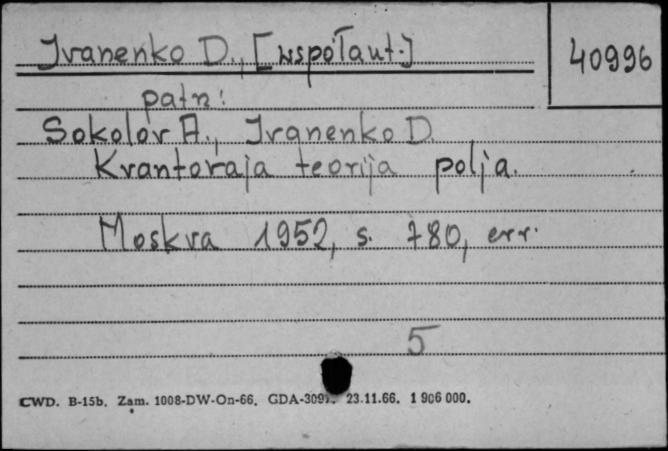 Ivanenko D., [współaut.]
40996
patrz:
Sokolov A., Ivanenko D.
Kvantovaja teorija polja.
Moskva 1952, s. 780, err.
5
CWD. B-15b. Zam. 1008-DW-On-66. 23.11.66. 1 906 000.